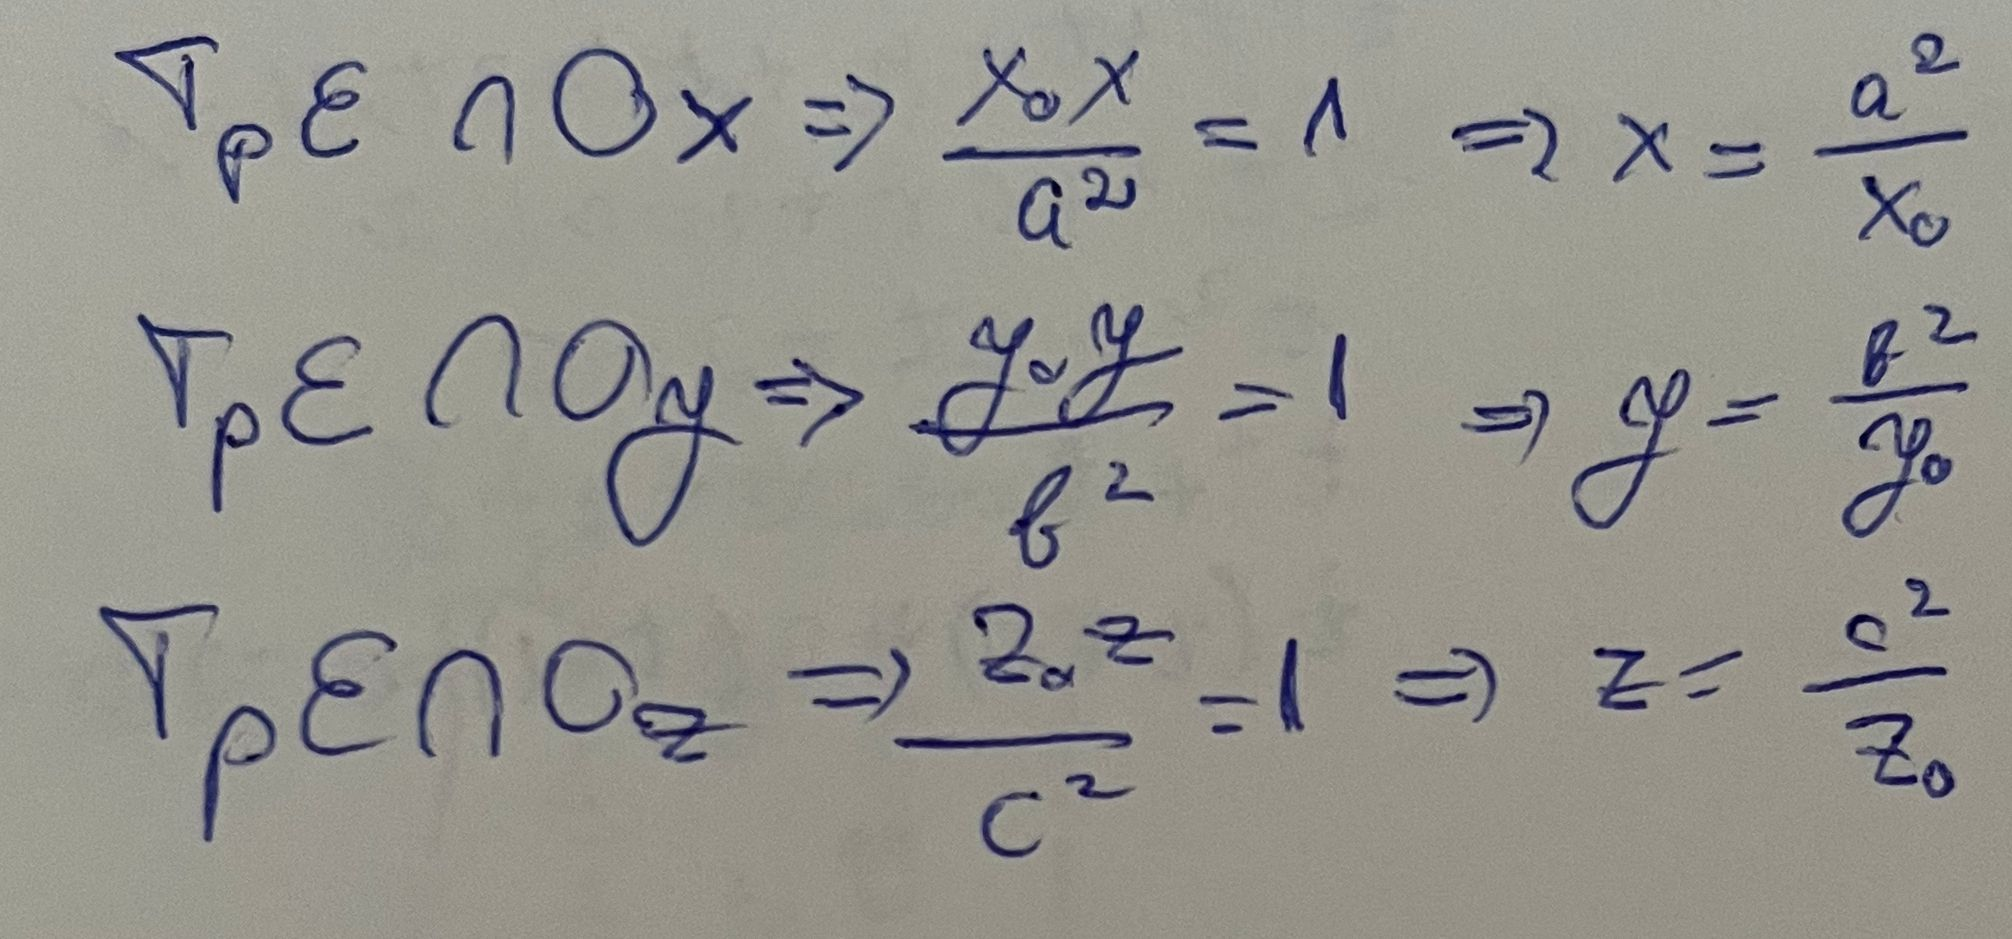 T_p ℰ ∩ Ox ⇒ x₀x/a² = 1 ⇒ x = a²/x₀
T_p ℰ ∩ Oy ⇒ y₀y/b² = 1 ⇒ y = b²/y₀
T_p ℰ ∩ Oz ⇒ z₀z/c² = 1 ⇒ z = c²/z₀